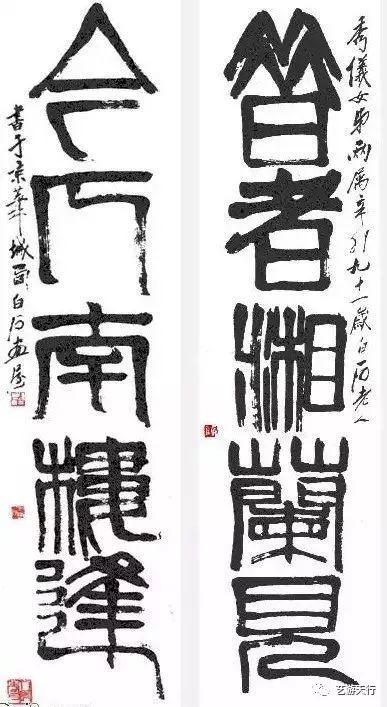 秀儀女弟兩屬辛卯九十一歲白石老人
昔者湘蘭見
今南樓逢
書于京華城西白石畫屋
艺游天行